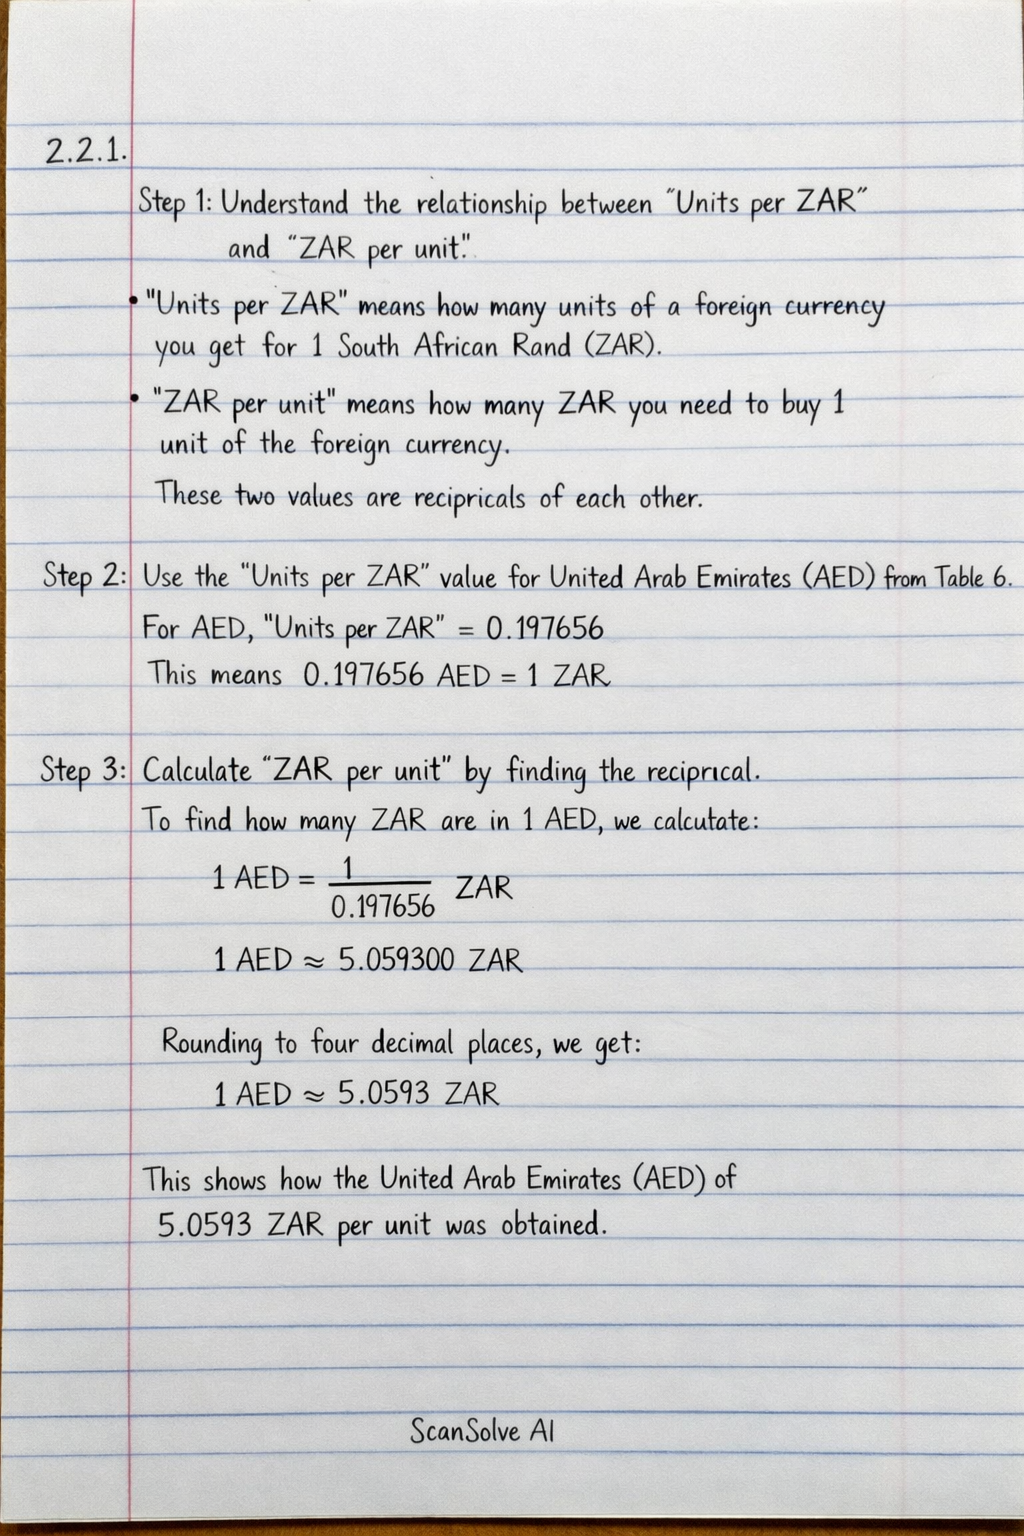 2.2.1.
Step 1: Understand the relationship between "Units per ZAR"
and "ZAR per unit".
• "Units per ZAR" means how many units of a foreign currency
you get for 1 South African Rand (ZAR).
• "ZAR per unit" means how many ZAR you need to buy 1
unit of the foreign currency.
These two values are recipricals of each other.
Step 2: Use the "Units per ZAR" value for United Arab Emirates (AED) from Table 6.
For AED, "Units per ZAR" = 0.197656
This means 0.197656 AED = 1 ZAR
Step 3: Calculate "ZAR per unit" by finding the reciprical.
To find how many ZAR are in 1 AED, we calcutate:
1 AED = 1/0.197656 ZAR
1 AED ≈ 5.059300 ZAR
Rounding to four decimal places, we get:
1 AED ≈ 5.0593 ZAR
This shows how the United Arab Emirates (AED) of
5.0593 ZAR per unit was obtained.
ScanSolve AI